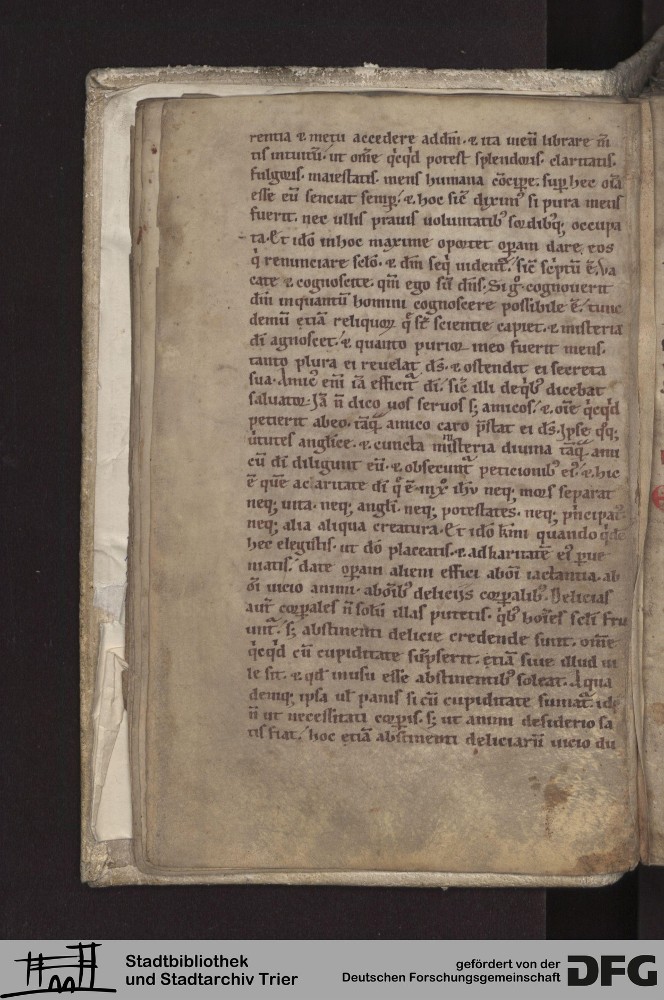 rentia & metu accedere addm̄. & ita uieū librare m̄
tis intuitū. ut om̄e q̇cq̇d potest splendoris. claritatis.
fulgoris. maiestatis. mens humana cōcipe. sup hec oīa
esse eū senciat semp. & hoc sic̄ diximꝰ si pura mens
fuerit. nec ullis prauis uoluntatibꝰ sordibꝰq; occupa
ta. Et idō inhoc maxime oportet opam dare. eos
q̇ renunciare sclō. & dm̄ seq̇ uident᷑. sic̄ sc̄ptū ē. Va
cate & cognoscite. qm̄ ego sū dn̄s. Si gͦ cognouerit
dm̄ inquantū homini cognoscere possibile ē. tunc
demū etiā reliquoꝝ q̇ st̄ scientie capiet. & misteria
dī agnoscet. & quanto purior in eo fuerit mens.
tanto plura ei reuelat ds̄. & ostendit ei secreta
sua. Amicꝰ eni īā efficit᷑ dī. sic̄ illi deq̇bꝰ dicebat
saluator. Jā n̄ dico uos seruos s; amicos. & om̄e q̇cq̇d
petierit abeo. tāq̄ amico caro p̄stat ei ds̄. Ipse q̇q;
uirtutes anglice. & cuncta misteria diuina tāq̄ ami
cū dī diligunt eū. & obsecunt᷑ peticionibꝰ eiꝰ. & hic
ē quē aclaritate dī q̇ ē inxp̄o ihū neq; mors separat
neq; uita. neq; angli. neq; potestates. neq; p̄ncipatꝰ.
neq; alia aliqua creatura. Et idō kīmi quando
hec elegistis. ut dō placeatis. & adkaritatē eiꝰ pue
niatis. date opam alieni effici abōi iactantia. ab
ōi uicio animi. abōibꝰ deliciis corpalibꝰ. Delicias
aut̄ corpales n̄ solū illas putetis. q̇bꝰ hoīes sclī fru
unt᷑. s; abstinenti delicie credende sunt. om̄e
q̇cq̇d cū cupiditate sūpserit. etiā siue illud ui
le sit. & qd̄ inusu esse abstinentibꝰ soleat. Aqua
deniq; ipsa ul̄ panis si cū cupiditate sumat᷑. id ē
n̄ ut necessitati corpis. s; ut animi desiderio sa
tis fiat. hoc etiā abstinenti deliciarū uicio du
Stadtbibliothek
und Stadtarchiv Trier
gefördert von der
Deutschen Forschungsgemeinschaft
DFG